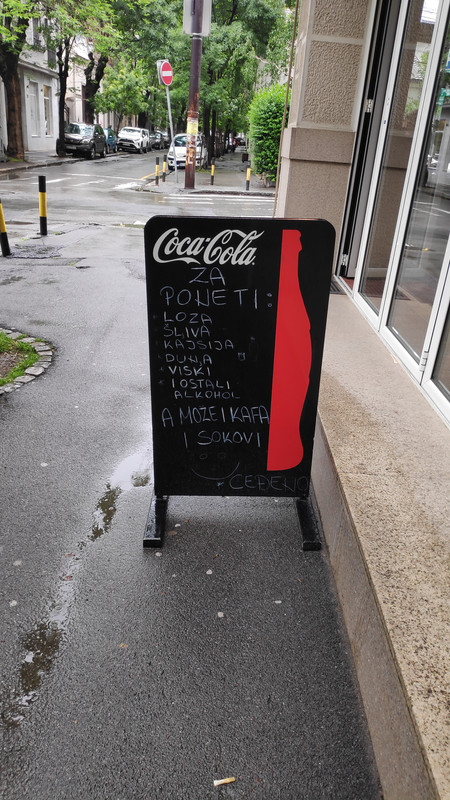 Coca-Cola
ZA
PONETI:
LOZA
ŠLIVA
KAJSIJA
DUNJA
VISKI
I OSTALI
ALKOHOL
A MOZE I KAFA
I SOKOVI